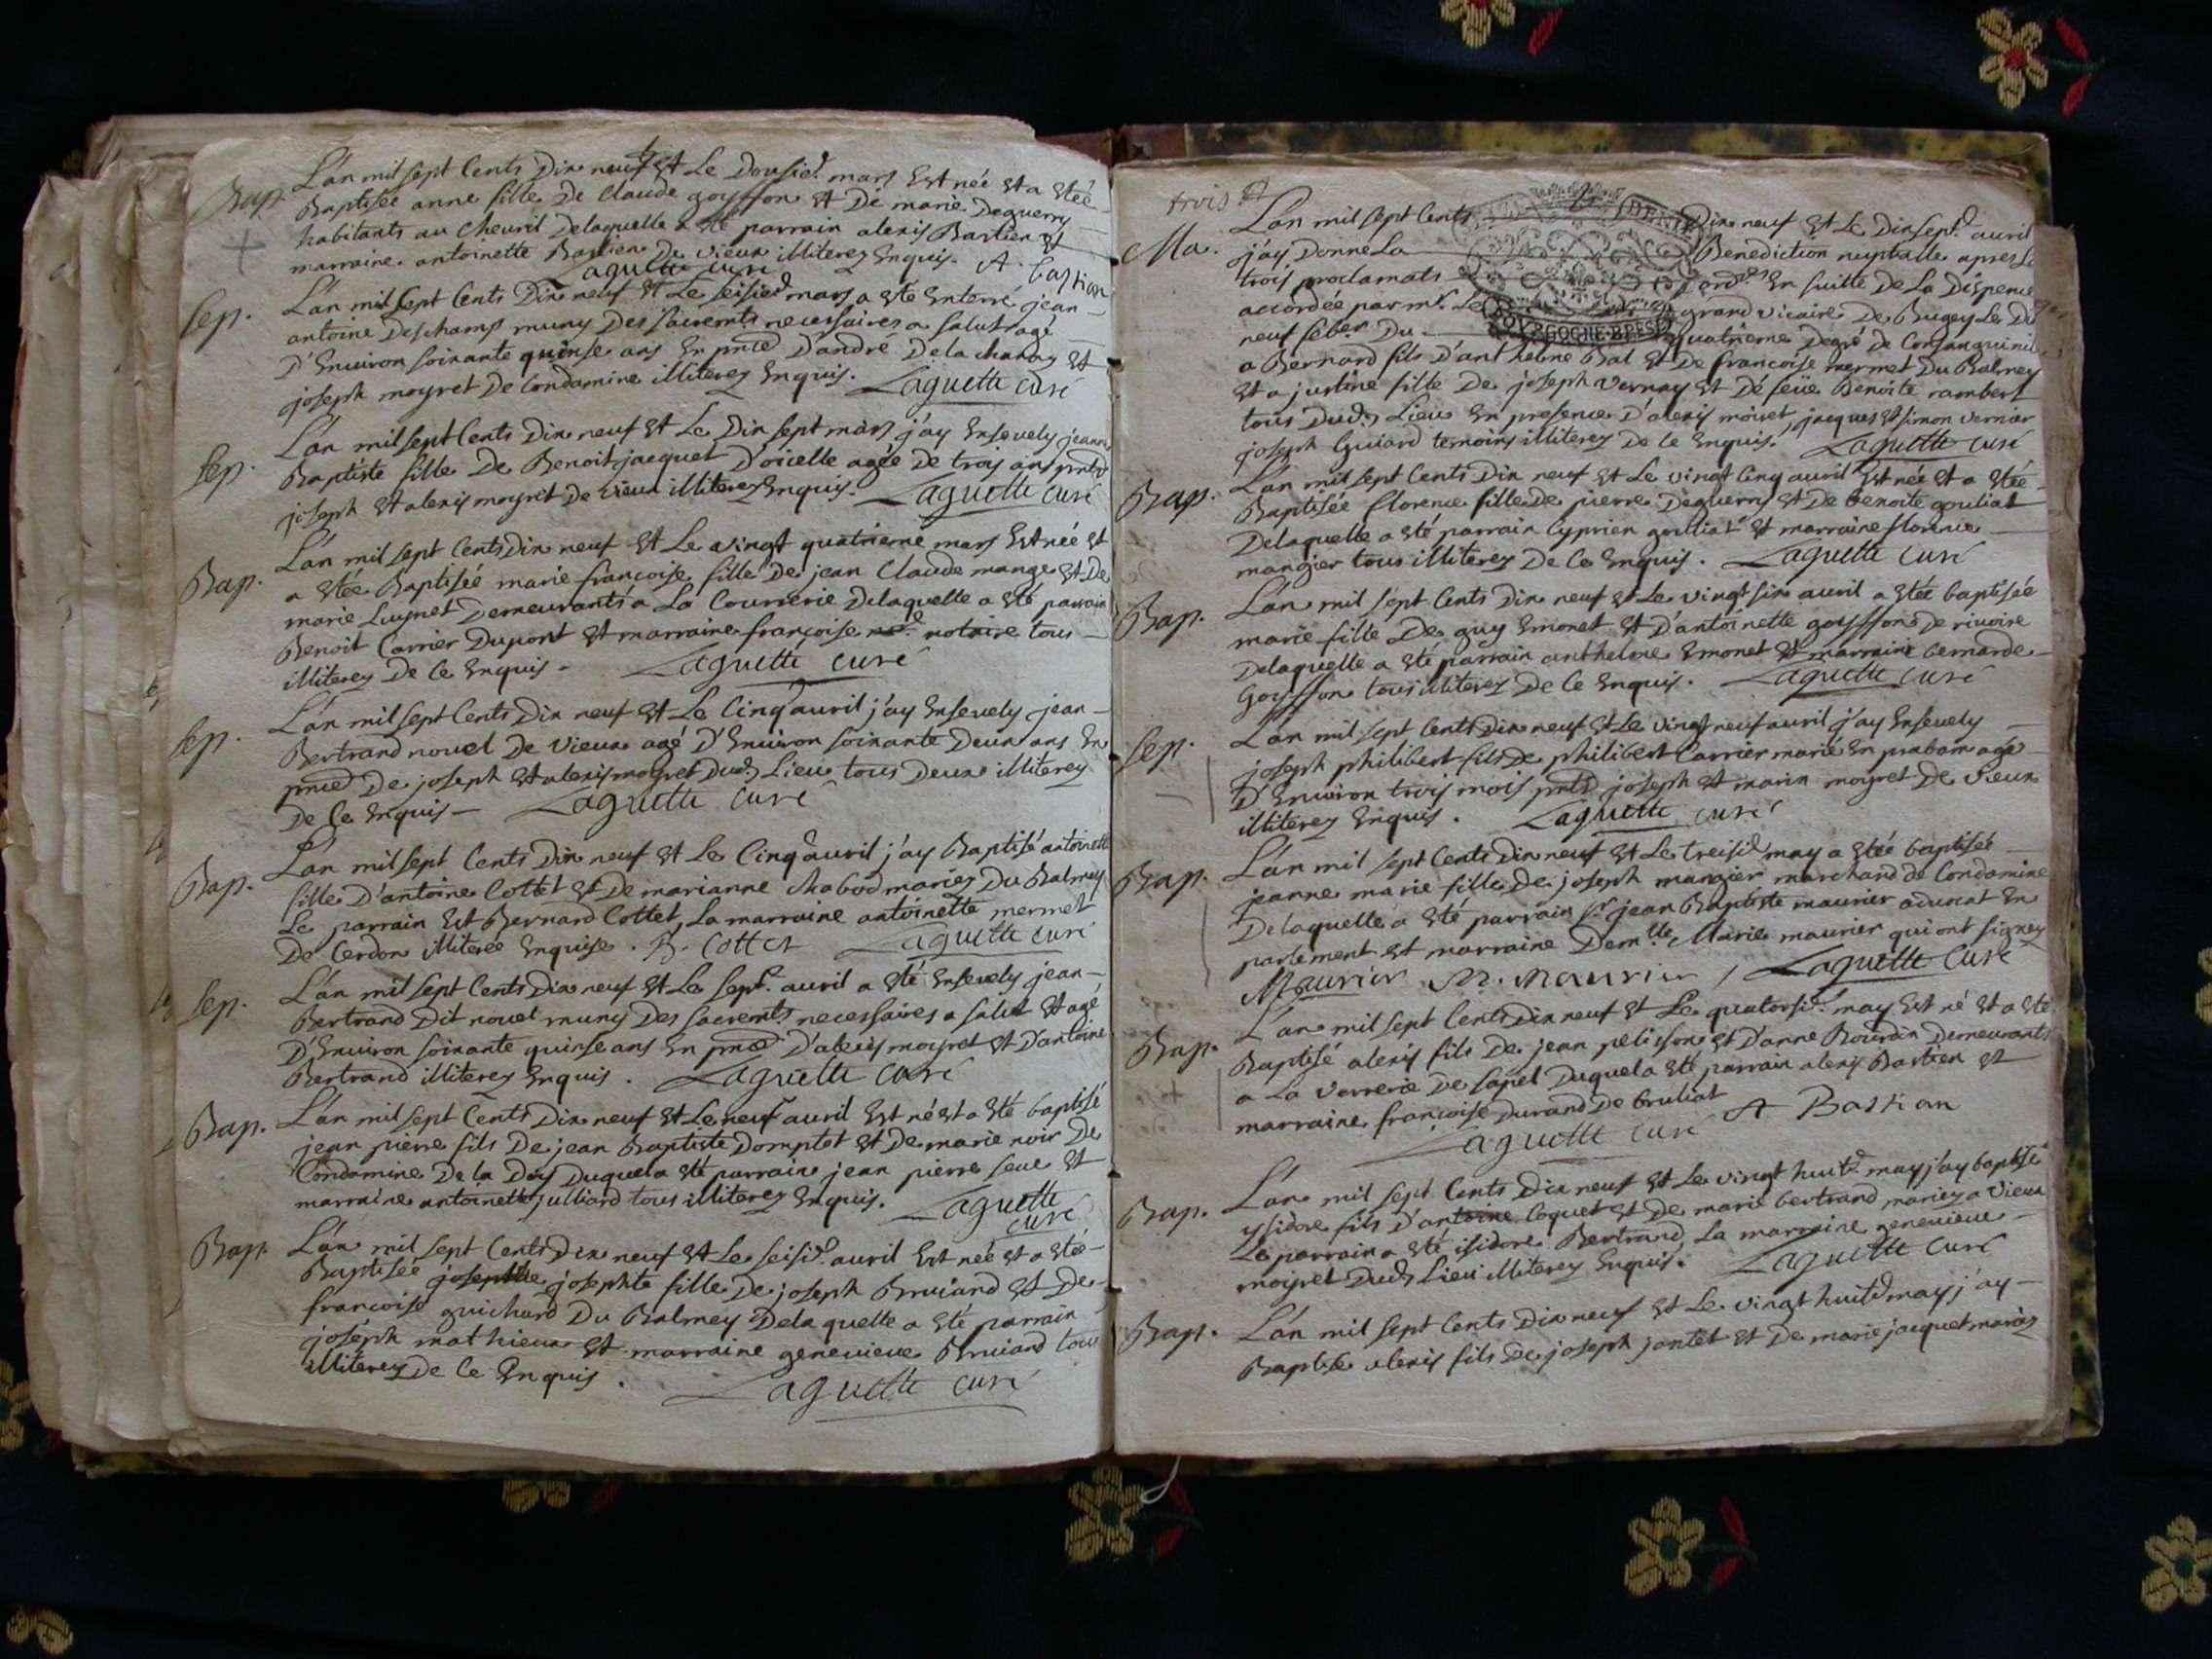 Bap. L'an mil sept Cents Dix neuf et Le Dousie. mars Est née et a Etée
Baptisée anne fille De Claude goyffon et De marie Deguerry
habitants au Cheuril Delaquelle a Eté parrain alexis Bastien et
marraine antoinette Bastien De vieux illiterez Enquis. A. bastian
Laguette curé
Sep. L'an mil sept Cents Dix neuf et Le seisied mars a Eté Enterré jean
antoine Deschamps muny Des sacremts necessaires a salut agé
D'Environ soixante quinse ans En pnce D'andré Delachanay et
joseph moyret De Condamine illiterez Enquis. Laguette curé
Sep. L'an mil sept Cents Dix neuf et Le Dix sept mars j'ay Ensevely jeanne
Baptiste fille De Benoit jacquet D'oicelle agée De trois ans pnts
joseph et alexis moyret De vieux illiterez Enquis. Laguette curé
Bap. L'an mil sept Cents Dix neuf et Le vingt quatrieme mars Est née et
a Etée Baptisée marie françoise fille De jean Claude mange et De
marie Luynet Demeurants a La Courrerie Delaquelle a Eté parrain
Benoit Carrier Dupont et marraine françoise notaire tous
illiterez De Ce Enquis. Laguette curé
Sep. L'an mil sept Cents Dix neuf et Le Cinq auril j'ay Ensevely jean
Bertrand nouel De vieux agé D'Environ soixante Deux ans En
pnce De joseph et alexis moyret Dud. Lieu tous Deux illiterez
De Ce Enquis Laguette curé
Bap. L'an mil sept Cents Dix neuf et Le Cinq auril j'ay Baptisé antoinette
fille D'antoine Cottet et De marianne Chabod mariez Du Balmey
Le parrain Est Bernard Cottet, La marraine antoinette mermet
De Cerdon illiterée Enquise. B. Cottet Laguette curé
Sep. L'an mil sept Cents Dix neuf et Le sept. auril a Eté Ensevely jean
Bertrand Dit nouel muny Des sacremts necessaires a salut et agé
D'Environ soixante quinse ans En pnce D'alexis moyret et D'antoine
Bertrand illiterez Enquis. Laguette curé
Bap. L'an mil sept Cents Dix neuf et Le neuf auril Est né et a Eté baptisé
jean pierre fils De jean Baptiste Domptet et De marie noir De
Condamine De la Doy Duquel a Eté parrain jean pierre seue et
marraine antoinette julliard tous illiterez Enquis. Laguette
curé
Bap. L'an mil sept Cents Dix neuf et Le seisie. auril Est née et a Etée
Baptisée josephte fille De joseph Bruiand et De
françoise guichard Du Balmey Delaquelle a Eté parrain
joseph mathieux et marraine geneuieue Bruiand tous
illiterez De Ce Enquis. Laguette curé
trois
Ma. L'an mil sept Cents Dix neuf et Le Dix sept. auril
j'ay Donné La Benediction nuptialle apres
trois proclamats En suitte De La Dispence
accordée par mr. Le grand vicaire De Bugey Le
neuf feber. Du quatrieme Degré De Consanguinité
a Bernard fils D'anthelme Bal et De françoise mermet Du Balmey
et a justine fille De joseph vernay et De feüe Benoite rambert
tous Dud. Lieu En presence D'alexis moiret, jacques et simon vernier
joseph Guiard temoins illiterez De Ce Enquis. Laguette curé
Bap. L'an mil sept Cents Dix neuf et Le vingt Cinq auril Est née et a Etée
Baptisée florence fille De pierre Deguerry et De benoite gouliat
Delaquelle a Eté parrain Cyprien goulliat et marraine florence
mangier tous illiterez De Ce Enquis. Laguette curé
Bap. L'an mil sept Cents Dix neuf et Le vingt six auril a Etée baptisée
marie fille De guy Emonet et D'antoinette goyffon De riuoire
Delaquelle a Eté parrain anthelme Emonet et marraine bernarde
Goyffon tous illiterez De Ce Enquis. Laguette curé
Sep. L'an mil sept Cents Dix neuf et Le vingt neuf auril j'ay Ensevely
joseph philibert fils De philibert Carrier marié En prabam agé
D'Environ trois mois pnts joseph et marin moyret De vieux
illiterez Enquis. Laguette curé
Bap. L'an mil sept Cents Dix neuf et Le treisie may a Etée baptisée
jeanne marie fille De joseph mangier marchand De Condamine
Delaquelle a Eté parrain sr. jean Baptiste maurier aduocat En
parlement et marraine Demlle Marie maurier qui ont signez
Maurier M. maurier Laguette Curé
Bap. L'an mil sept Cents Dix neuf et Le quatorsie. may Est né et a Eté
Baptisé alexis fils De jean pelisson et D'anne Rouran Demeurants
a La Verrerie De Sapel Duquel a Eté parrain alexis Bastien et
marraine françoise Durand De bruliat
Laguette curé A Bastian
Bap. L'an mil sept Cents Dix neuf et Le vingt huit. may j'ay baptisé
ysidore fils D'antoine Coquet et De marie bertrand mariez a vieux
Le parrain a Eté isidore Bertrand La marraine geneuieue
moyret Dud. Lieu illiterez Enquis. Laguette curé
Bap. L'an mil sept Cents Dix neuf et Le vingt huit may j'ay
Baptisé alexis fils De joseph jantet et De marie jacquet mariez